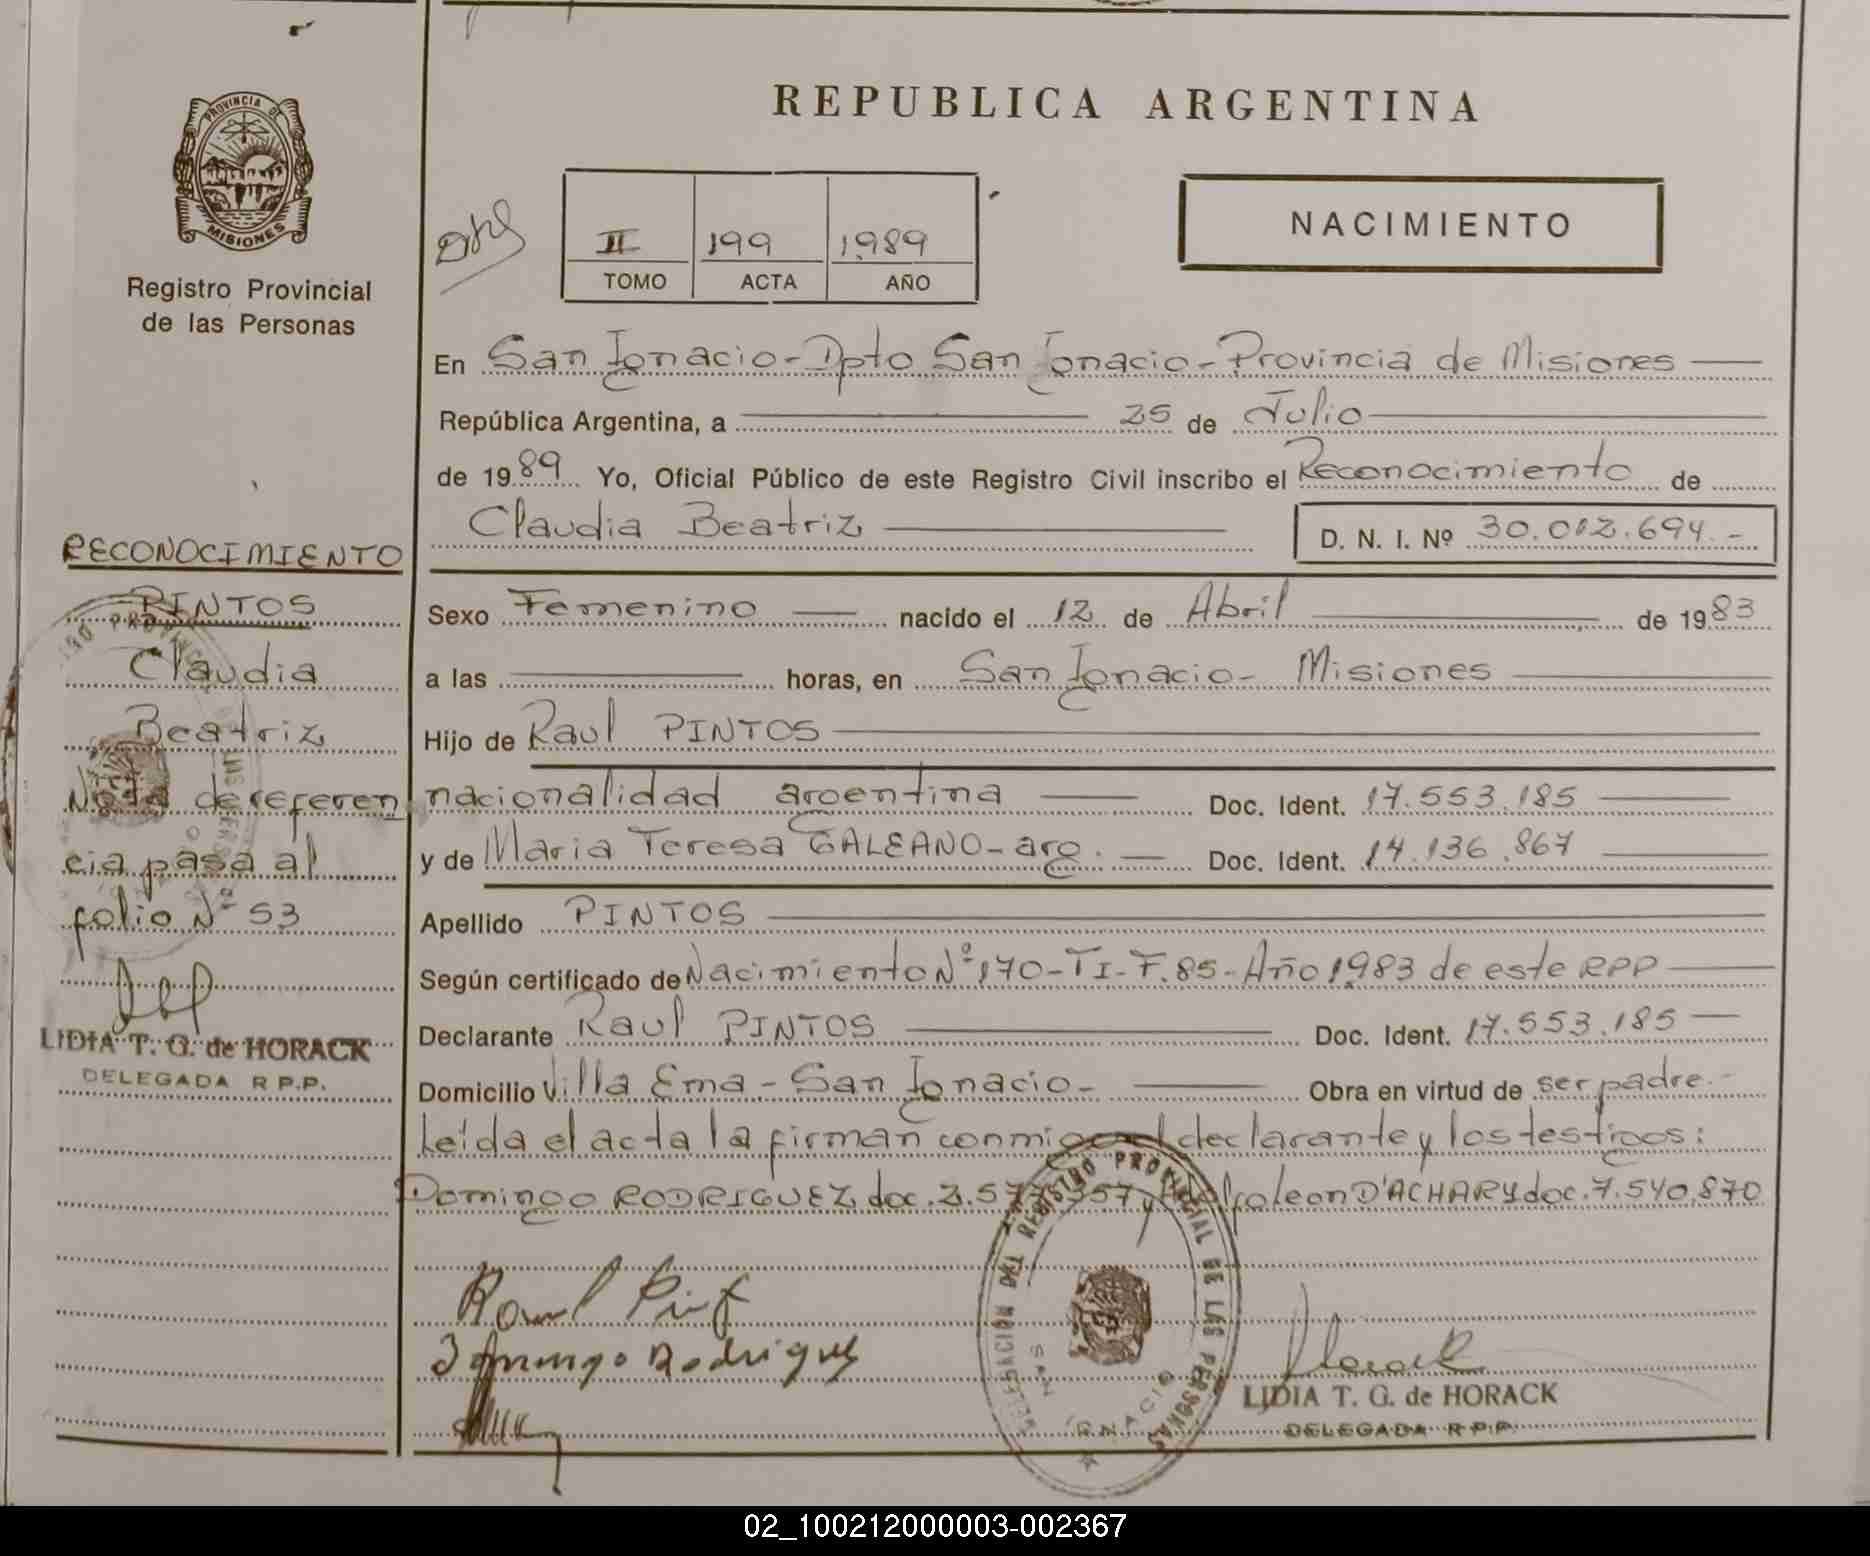 REPUBLICA ARGENTINA
PROVINCIA DE
MISIONES
Registro Provincial
de las Personas
II 199 1989
TOMO ACTA AÑO
NACIMIENTO
En San Ignacio - Dpto San Ignacio - Provincia de Misiones
República Argentina, a 25 de Julio
de 1989 Yo, Oficial Público de este Registro Civil inscribo el Reconocimiento de
Claudia Beatriz D. N. I. Nº 30.012.694.-
Sexo Femenino nacido el 12 de Abril de 1983
a las horas, en San Ignacio - Misiones
Hijo de Raul PINTOS
nacionalidad argentina Doc. Ident. 17.553.185
y de Maria Teresa GALEANO - arg. Doc. Ident. 14.136.867
Apellido PINTOS
Según certificado de Nacimiento Nº 170 - T I - F. 85 - Año 1983 de este RPP
Declarante Raul PINTOS Doc. Ident. 17.553.185
Domicilio Villa Ema - San Ignacio - Obra en virtud de ser padre.-
Leída el acta la firman conmigo el declarante y los testigos:
Domingo RODRIGUEZ doc. 2.575.357 y Napoleon D'ACHARY doc. 7.540.870
Domingo Rodrigues
DELEGACION DEL REGISTRO PROVINCIAL DE LAS PERSONAS
SAN IGNACIO
LIDIA T. G. de HORACK
DELEGADA R.P.P.
RECONOCIMIENTO
PINTOS
Claudia
Beatriz
Nota de referen
cia pasa al
folio Nº 53
LIDIA T. G. de HORACK
DELEGADA R P.P.
02_100212000003-002367